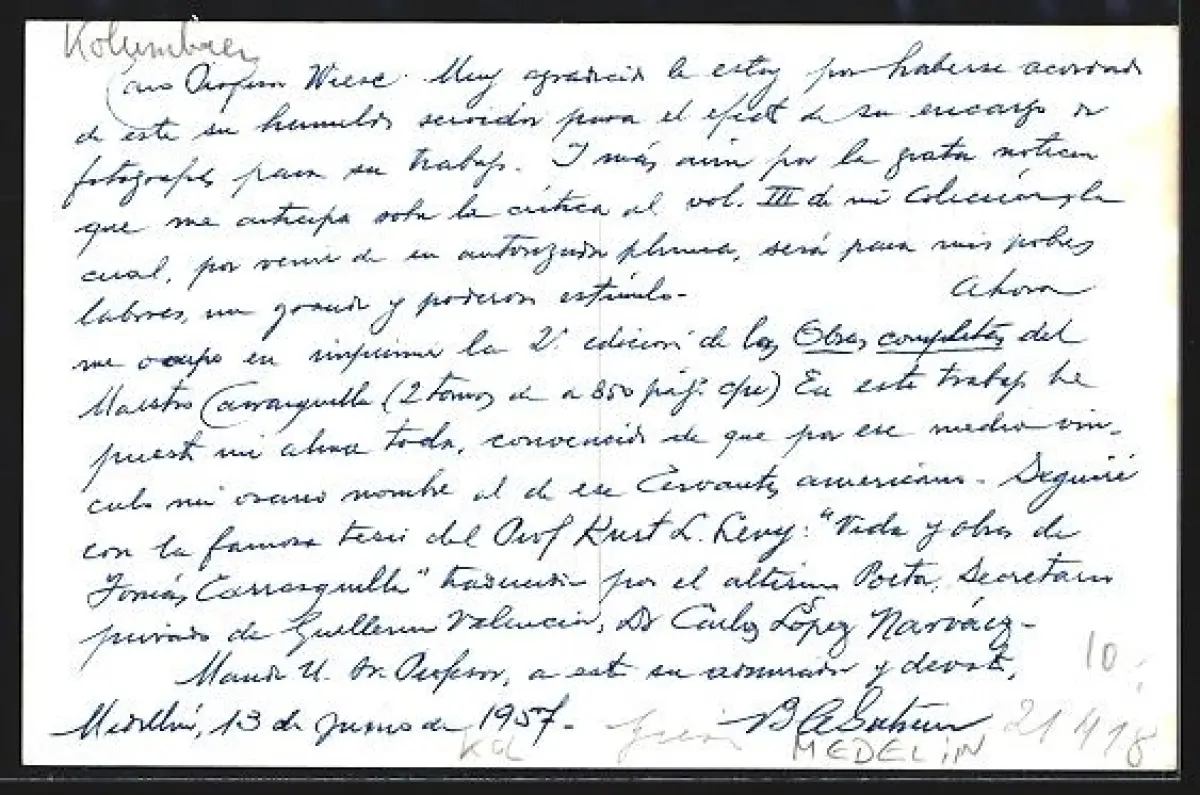 Kolumbien
Caro Profesor Wiese. Muy agradecido le estoy por haberse acordado
de este su humilde servidor para el efecto de su encargo de
fotografías para su trabajo. I más aún por la grata noticia
que me anticipa sobre la crítica al vol. III de mi Colección, la
cual, por venir de su autorizada pluma, será para mis pobres
labores, un grande y poderoso estímulo. Ahora
me ocupo en imprimir la 2ª edición de las Obras completas del
Maestro Carrasquilla (2 tomos de a 850 pág. c/u) En este trabajo he
puesto mi alma toda, convencido de que por ese medio vin-
culo mi oscuro nombre al de ese Cervantes americano. Seguiré
con la famosa tesis del Prof Kurt L. Levy: "Vida y obras de
Tomás Carrasquilla" traducida por el altísimo Poeta, Secretario
privado de Guillermo Valencia, Dr Carlos López Narváez-
Mande U. Sr. Profesor, a este su admirador y devoto,
Medellín, 13 de Junio de 1957.
10
MEDELIN
21418